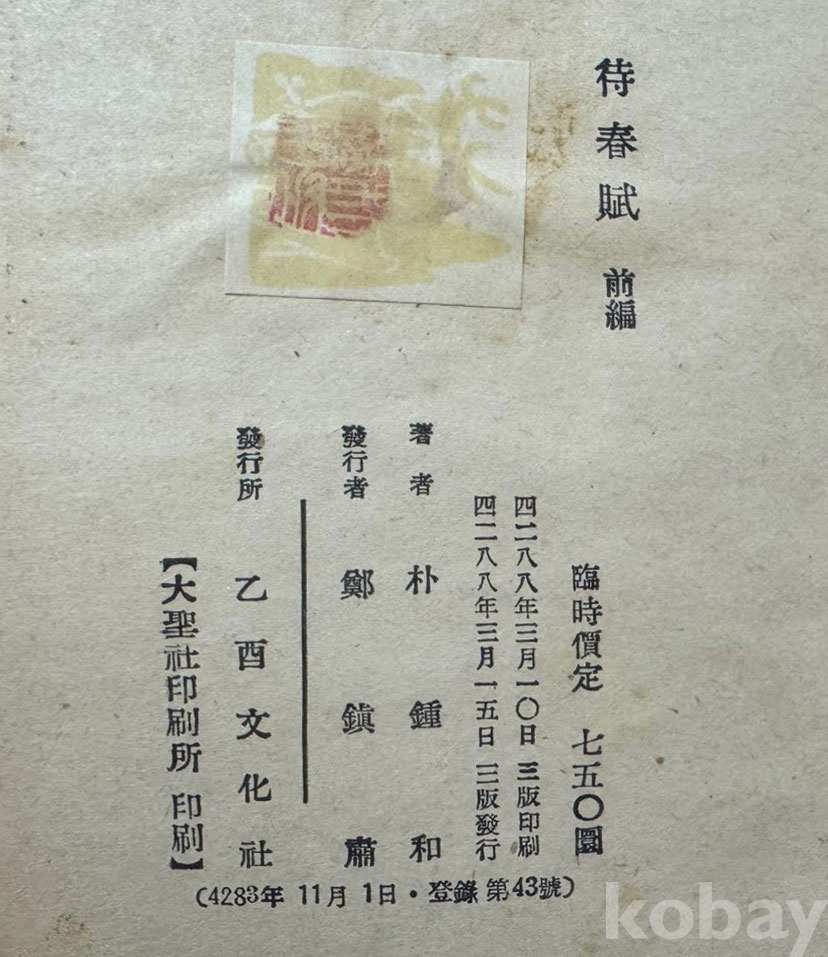 待春賦 前編
臨時價定 七五〇圜
四二八八年三月一〇日 三版印刷
四二八八年三月一五日 三版發行
著者 朴鍾和
發行者 鄭鎭肅
發行所 乙酉文化社
【大聖社印刷所 印刷】
(4283年 11月 1日・登錄 第43號)
kobay